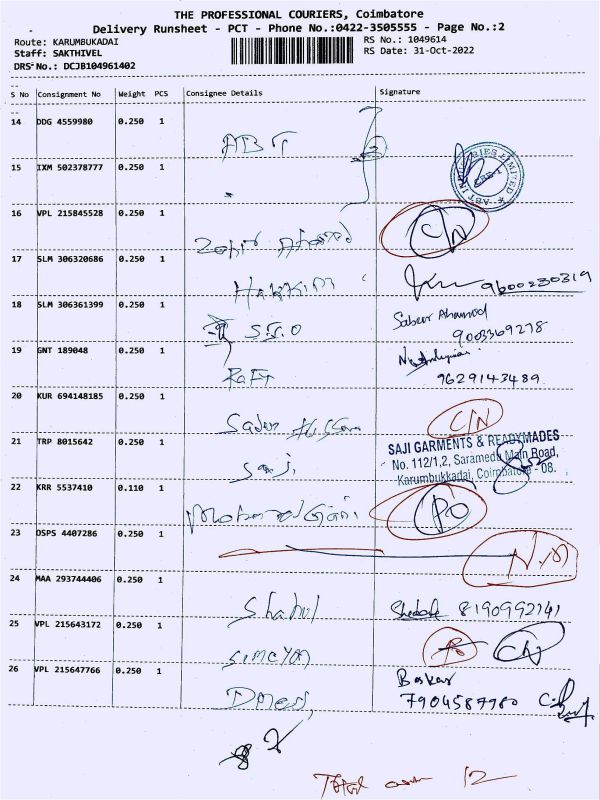 THE PROFESSIONAL COURIERS, Coimbatore
Delivery Runsheet - PCT - Phone No.:0422-3505555 - Page No.:2
Route: KARUMBUKADAI
RS No.: 1049614
Staff: SAKTHIVEL
RS Date: 31-Oct-2022
DRS No.: DCJB104961402
S No Consignment No Weight PCS Consignee Details Signature
14 DDG 4559980 0.250 1 ABT
15 IXM 502378777 0.250 1
ABT INDUSTRIES LIMITED
16 VPL 215845528 0.250 1 C/N
17 SLM 306320686 0.250 1 Hakkim 9600230319
18 SLM 306361399 0.250 1 S.I.O Sabeer Ahamed
9003369278
19 GNT 189048 0.250 1 Rafi
9629143489
20 KUR 694148185 0.250 1 C/N
21 TRP 8015642 0.250 1 Saji
SAJI GARMENTS & READYMADES
No. 112/1,2, Saramedu Main Road,
Karumbukkadai, Coimbatore - 08.
22 KRR 5537410 0.110 1 Mohamed Gani
23 OSPS 4407286 0.250 1
24 MAA 293744406 0.250 1 Shahul 8190992141
25 VPL 215643172 0.250 1 C/N
26 VPL 215647766 0.250 1 Baskar
7904587980
Total 12